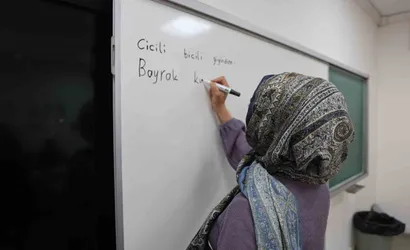 Cicili bicili
Bayrak k